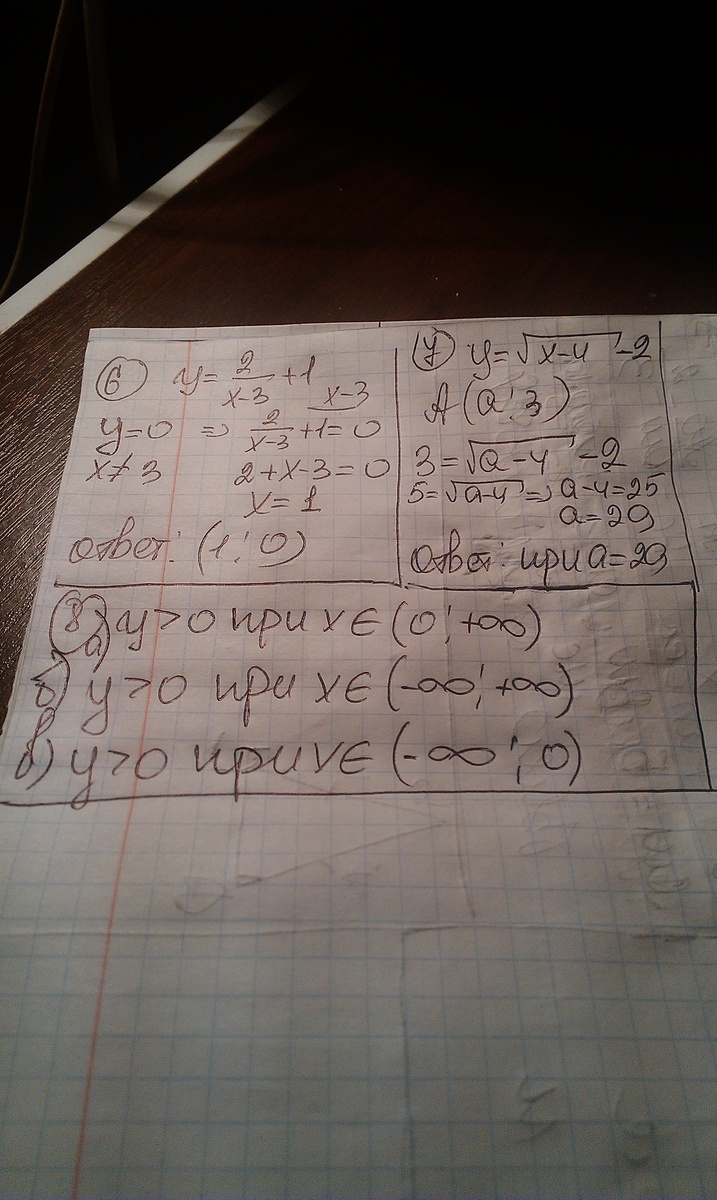 ⑥ y = 2/(x-3) + 1
x-3
y=0 ⇒ 2/(x-3) + 1 = 0
x ≠ 3 2+x-3=0
x = 1
ответ: (1; 0)
⑦ y = √(x-4) - 2
A(a; 3)
3 = √(a-4) - 2
5 = √(a-4) ⇒ a-4=25
a=29
ответ: при a=29
⑧ а) y>0 при x∈(0; +∞)
б) y>0 при x∈(-∞; +∞)
в) y>0 при x∈(-∞; 0)